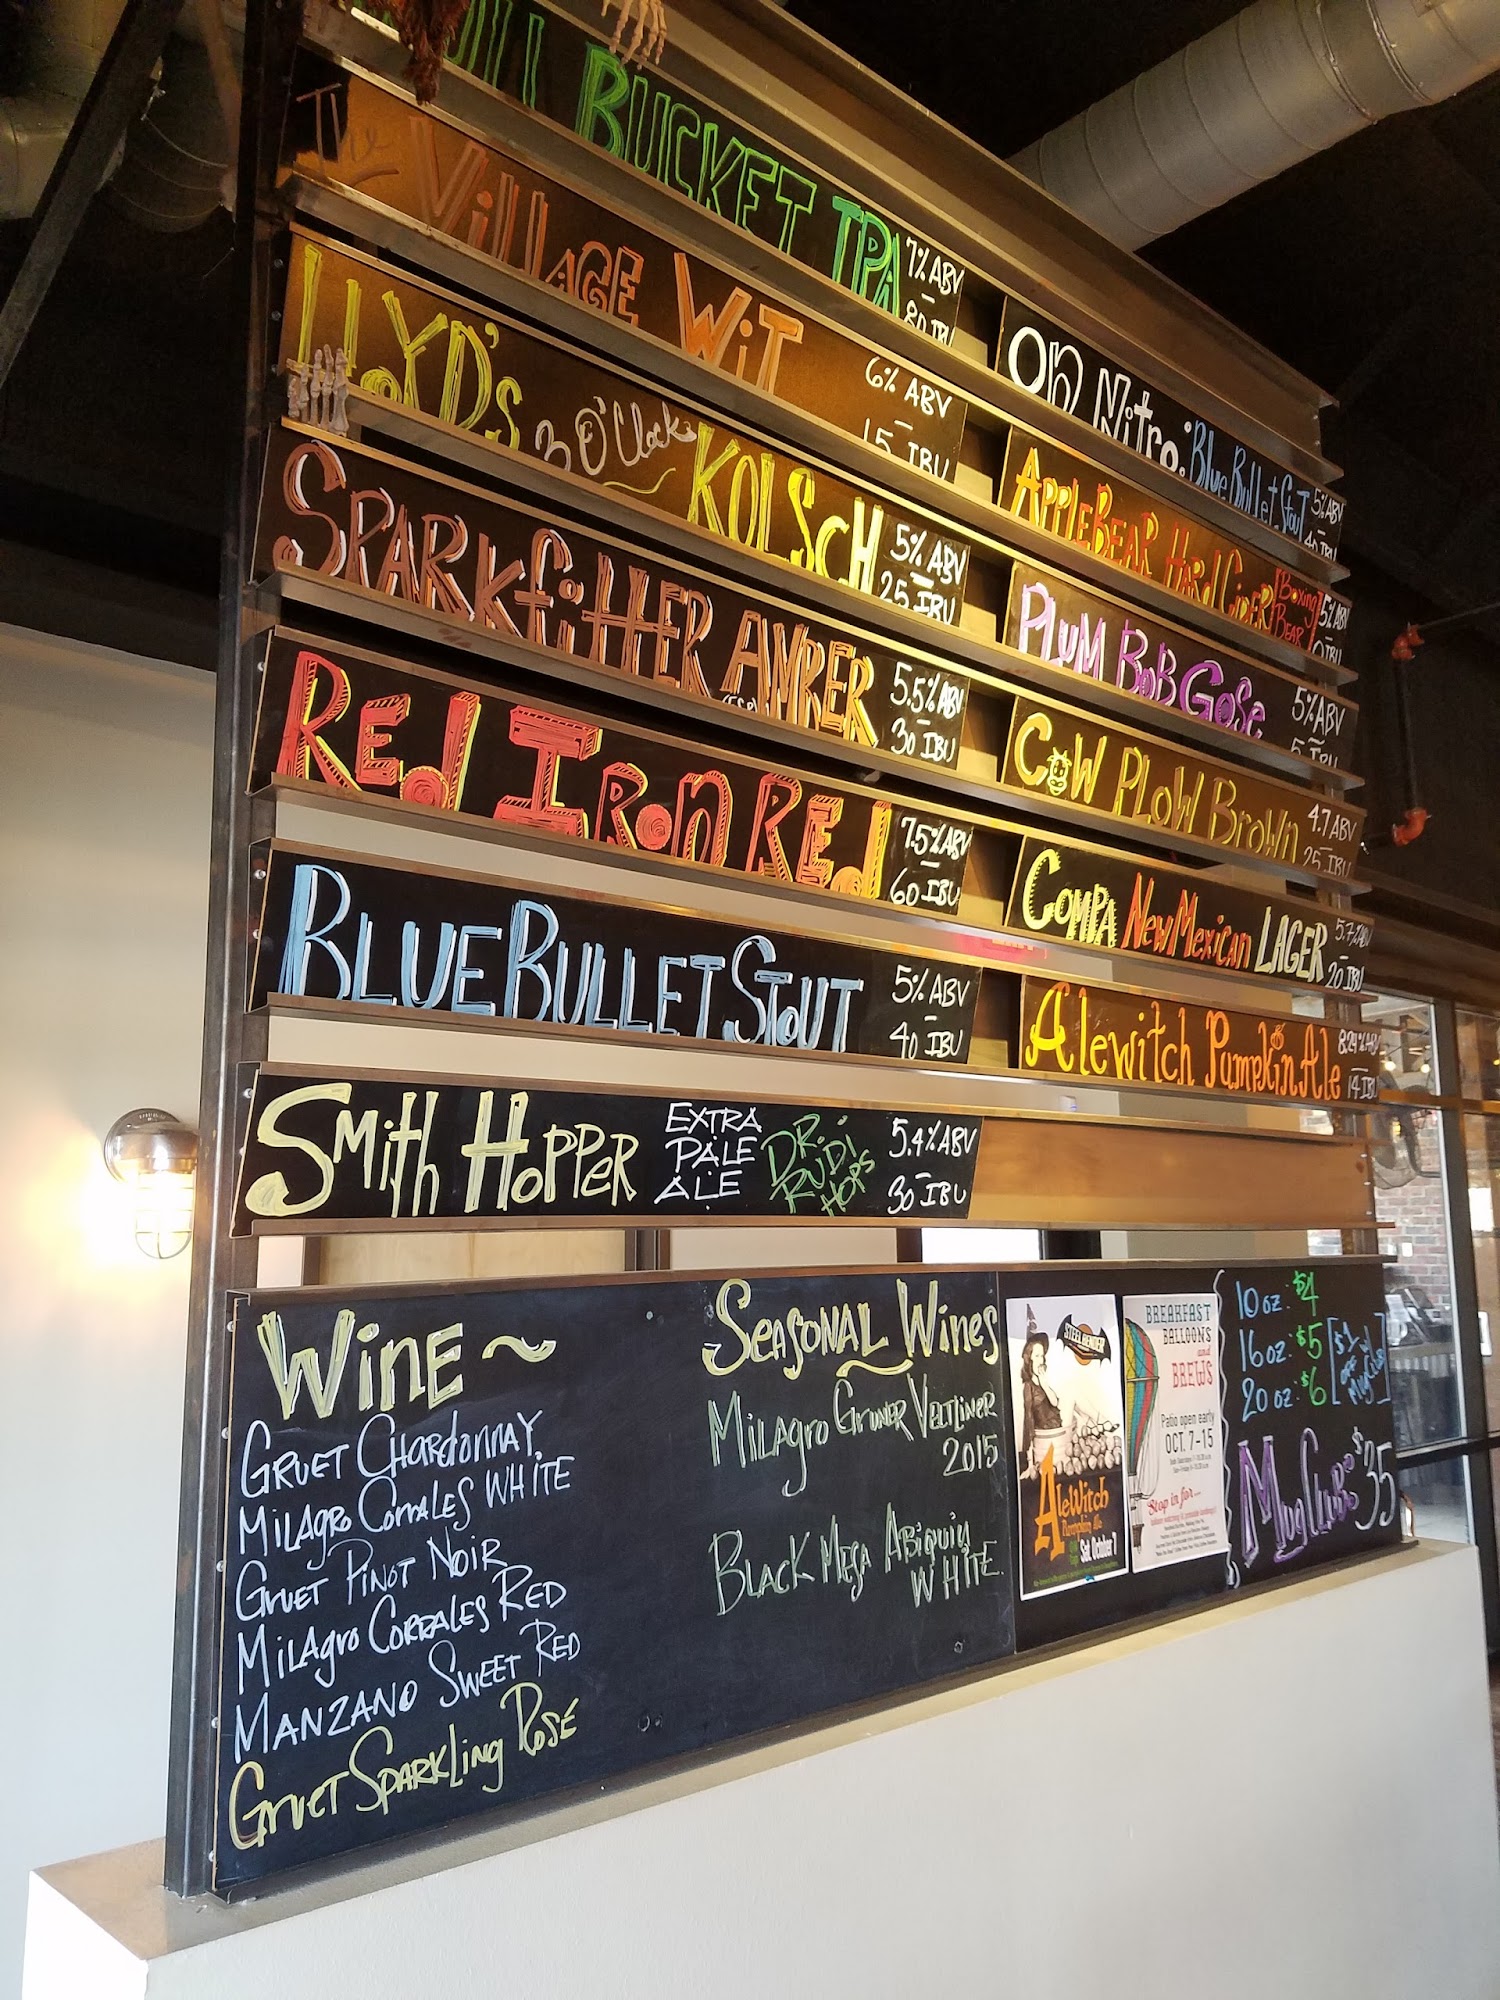 BUCKET IPA 7% ABV
80 IBU
The Village Wit 6% ABV
15 IBU
Lloyd's 3 O'Clock KOLSCH 5% ABV
25 IBU
Sparkfitter AMBER 5.5% ABV
30 IBU
Red Iron Red 7.5% ABV
60 IBU
Blue Bullet Stout 5% ABV
40 IBU
Smith Hopper EXTRA PALE ALE DR. RUDI HOPS 5.4% ABV
30 IBU
On Nitro: Blue Bullet Stout 5% ABV
40 IBU
AppleBear Hard Cider [Boxing Bear] 5% ABV
0 IBU
Plum Bob Gose 5% ABV
5 IBU
Cow Plow Brown 4.7 ABV
25 IBU
Compa New Mexican LAGER 5.7% ABV
20 IBU
Alewitch Pumpkin Ale 8.24% ABV
14 IBU
Wine ~
Gruet Chardonnay
Milagro Corrales WHITE
Gruet Pinot Noir
Milagro Corrales Red
Manzano Sweet Red
Gruet Sparkling Rosé
Seasonal Wines
Milagro Gruner Veltliner
2015
Black Mesa Abiquiu
WHITE
STEEL BENDER
AleWitch
Pumpkin Ale
Sat. October 7
BREAKFAST
BALLOONS
and
BREWS
Patio open early
OCT. 7-15
Stop in for...
10 oz: $4
16 oz: $5
20 oz: $6
[$1 OFF w/ MugClub]
Mug Club: $35